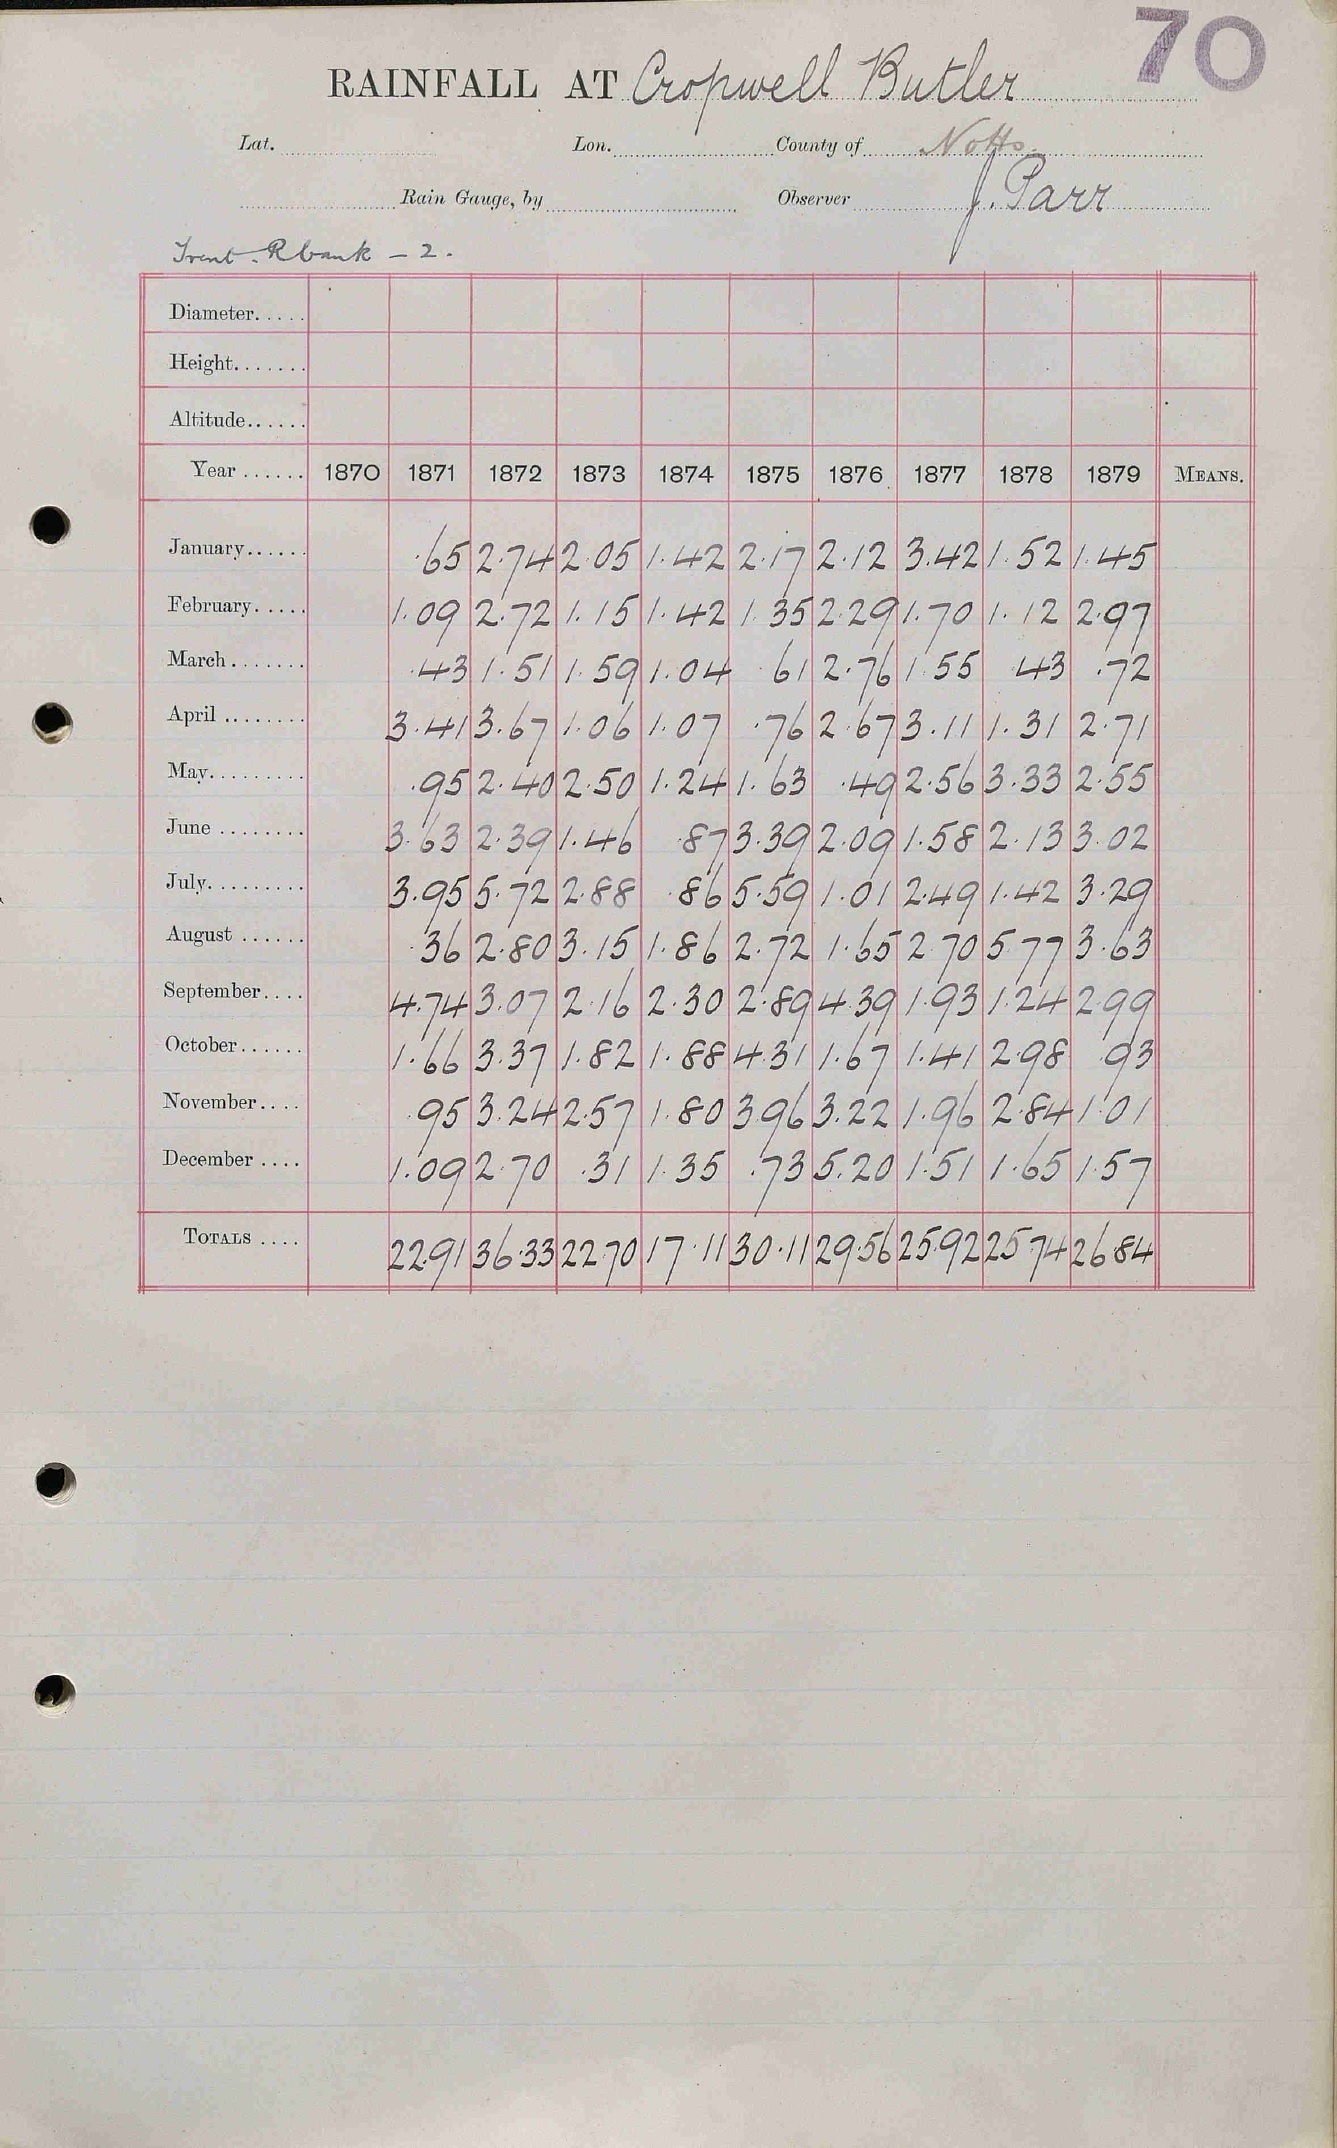 70
RAINFALL AT Cropwell Butler
Lat. Lon. County of Notts
Rain Gauge, by Observer J. Parr
Trent. R bank - 2.
Diameter.....
Height.......
Altitude......
Year ...... 1870 1871 1872 1873 1874 1875 1876 1877 1878 1879 MEANS.
January...... .65 2.74 2.05 1.42 2.17 2.12 3.42 1.52 1.45
February..... 1.09 2.72 1.15 1.42 1.35 2.29 1.70 1.12 2.97
March ....... .43 1.51 1.59 1.04 .61 2.76 1.55 .43 .72
April ........ 3.41 3.67 1.06 1.07 .76 2.67 3.11 1.31 2.71
May......... .95 2.40 2.50 1.24 1.63 .49 2.56 3.33 2.55
June ........ 3.63 2.39 1.46 .87 3.39 2.09 1.58 2.13 3.02
July......... 3.95 5.72 2.88 .86 5.59 1.01 2.49 1.42 3.29
August ...... .36 2.80 3.15 1.86 2.72 1.65 2.70 5.77 3.63
September.... 4.74 3.07 2.16 2.30 2.89 4.39 1.93 1.24 2.99
October...... 1.66 3.37 1.82 1.88 4.31 1.67 1.41 2.98 .93
November.... .95 3.24 2.57 1.80 3.96 3.22 1.96 2.84 1.01
December .... 1.09 2.70 .31 1.35 .73 5.20 1.51 1.65 1.57
TOTALS .... 22.91 36.33 22.70 17.11 30.11 29.56 25.92 25.74 26.84